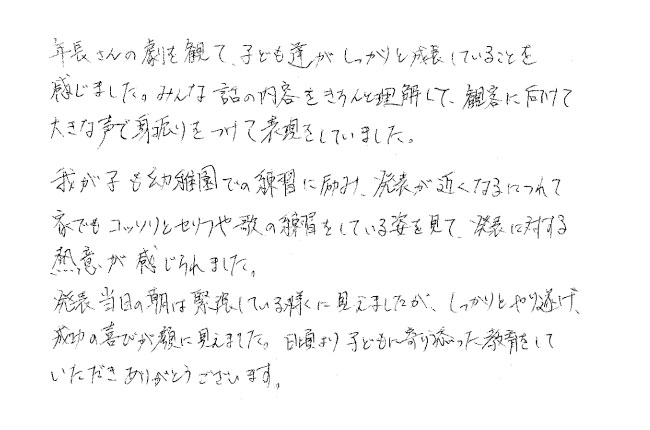 年長さんの劇を観て、子ども達がしっかりと成長していることを
感じました。みんな話の内容をきちんと理解して、観客に向けて
大きな声で身振りをつけて表現をしていました。
我が子も幼稚園での練習に励み、発表が近くなるにつれて
家でもコッソリとセリフや歌の練習をしている姿を見て、発表に対する
熱意が感じられました。
発表当日の朝は緊張している様に見えましたが、しっかりとやり遂げ、
成功の喜びが顔に見えました。日頃より子どもに寄り添った教育をして
いただきありがとうございます。